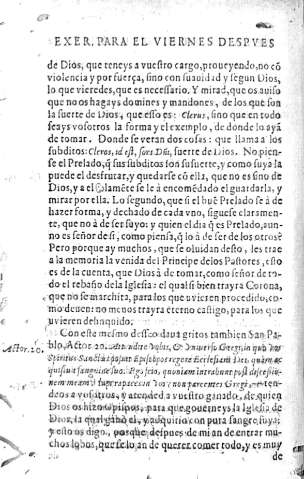 EXER. PARA EL VIERNES DESPVES
de Dios, que teneys a vuestro cargo, proueyendo, no cõ
violencia y por fuerça, sino con suauidad y segun Dios,
lo que vieredes, que es necessario. Y mirad, que os auiso
que no os hagays domines y mandones, de los que son
la suerte de Dios, que esso es: Clerus, sino que en todo
seays vosotros la forma y el exemplo, de donde lo ayã
de tomar. Donde se veran dos cosas: que llama a los
subditos: Cleros, id est, sors Dei, suerte de Dios. No pien-
se el Prelado, q̃ sus subditos son su suerte, y como suya la
puede el desfrutar, y quedarse cõ ella, que no es sino de
Dios, y a el solamẽte se le à encomẽdado el guardarla, y
mirar por ella. Lo segundo, que si el buẽ Prelado se à de
hazer forma, y dechado de cada vno, siguese claramen-
te, que no à de ser suyo: y quien el dia q̃ es Prelado, aun-
no es señor de si, como piensa, q̃ lo à de ser de los otros?
Pero porque ay muchos, que se oluidan desto, les trae
a la memoria la venida del Principe de los Pastores, esto
es de la cuenta, que Dios à de tomar, como señor de to-
do el rebaño de la Iglesia: el qual si bien trayra Corona,
que no se marchita, para los que uvieren procedido, co-
mo deuen: no menos trayra eterno castigo, para los que
uvieren delinquido.
Con este mesmo desseo daua gritos tambien San Pa-
Actor. 20. blo, Actor. 20. Attendite vobis, & vniuerso Gregi, in quo vos
Spiritus Sanctus posuit Episcopos regere Ecclesiam Dei, quam ac-
quisiuit sanguine suo. Ego scio, quoniam intrabunt post discessio-
nem meam lupi rapaces in vos, non parcentes Gregi. Aten-
deos a vosotros, y atended a vuestro ganado, de quien
Dios os hizo Obispos, para que gouerneys la Iglesia de
Dios, la qual ganò el, y adquirio con pura sangre suya:
y esto os digo, porque despues de mi an de entrar mu-
chos lobos, que se lo an de querer comer todo, y es muy
de